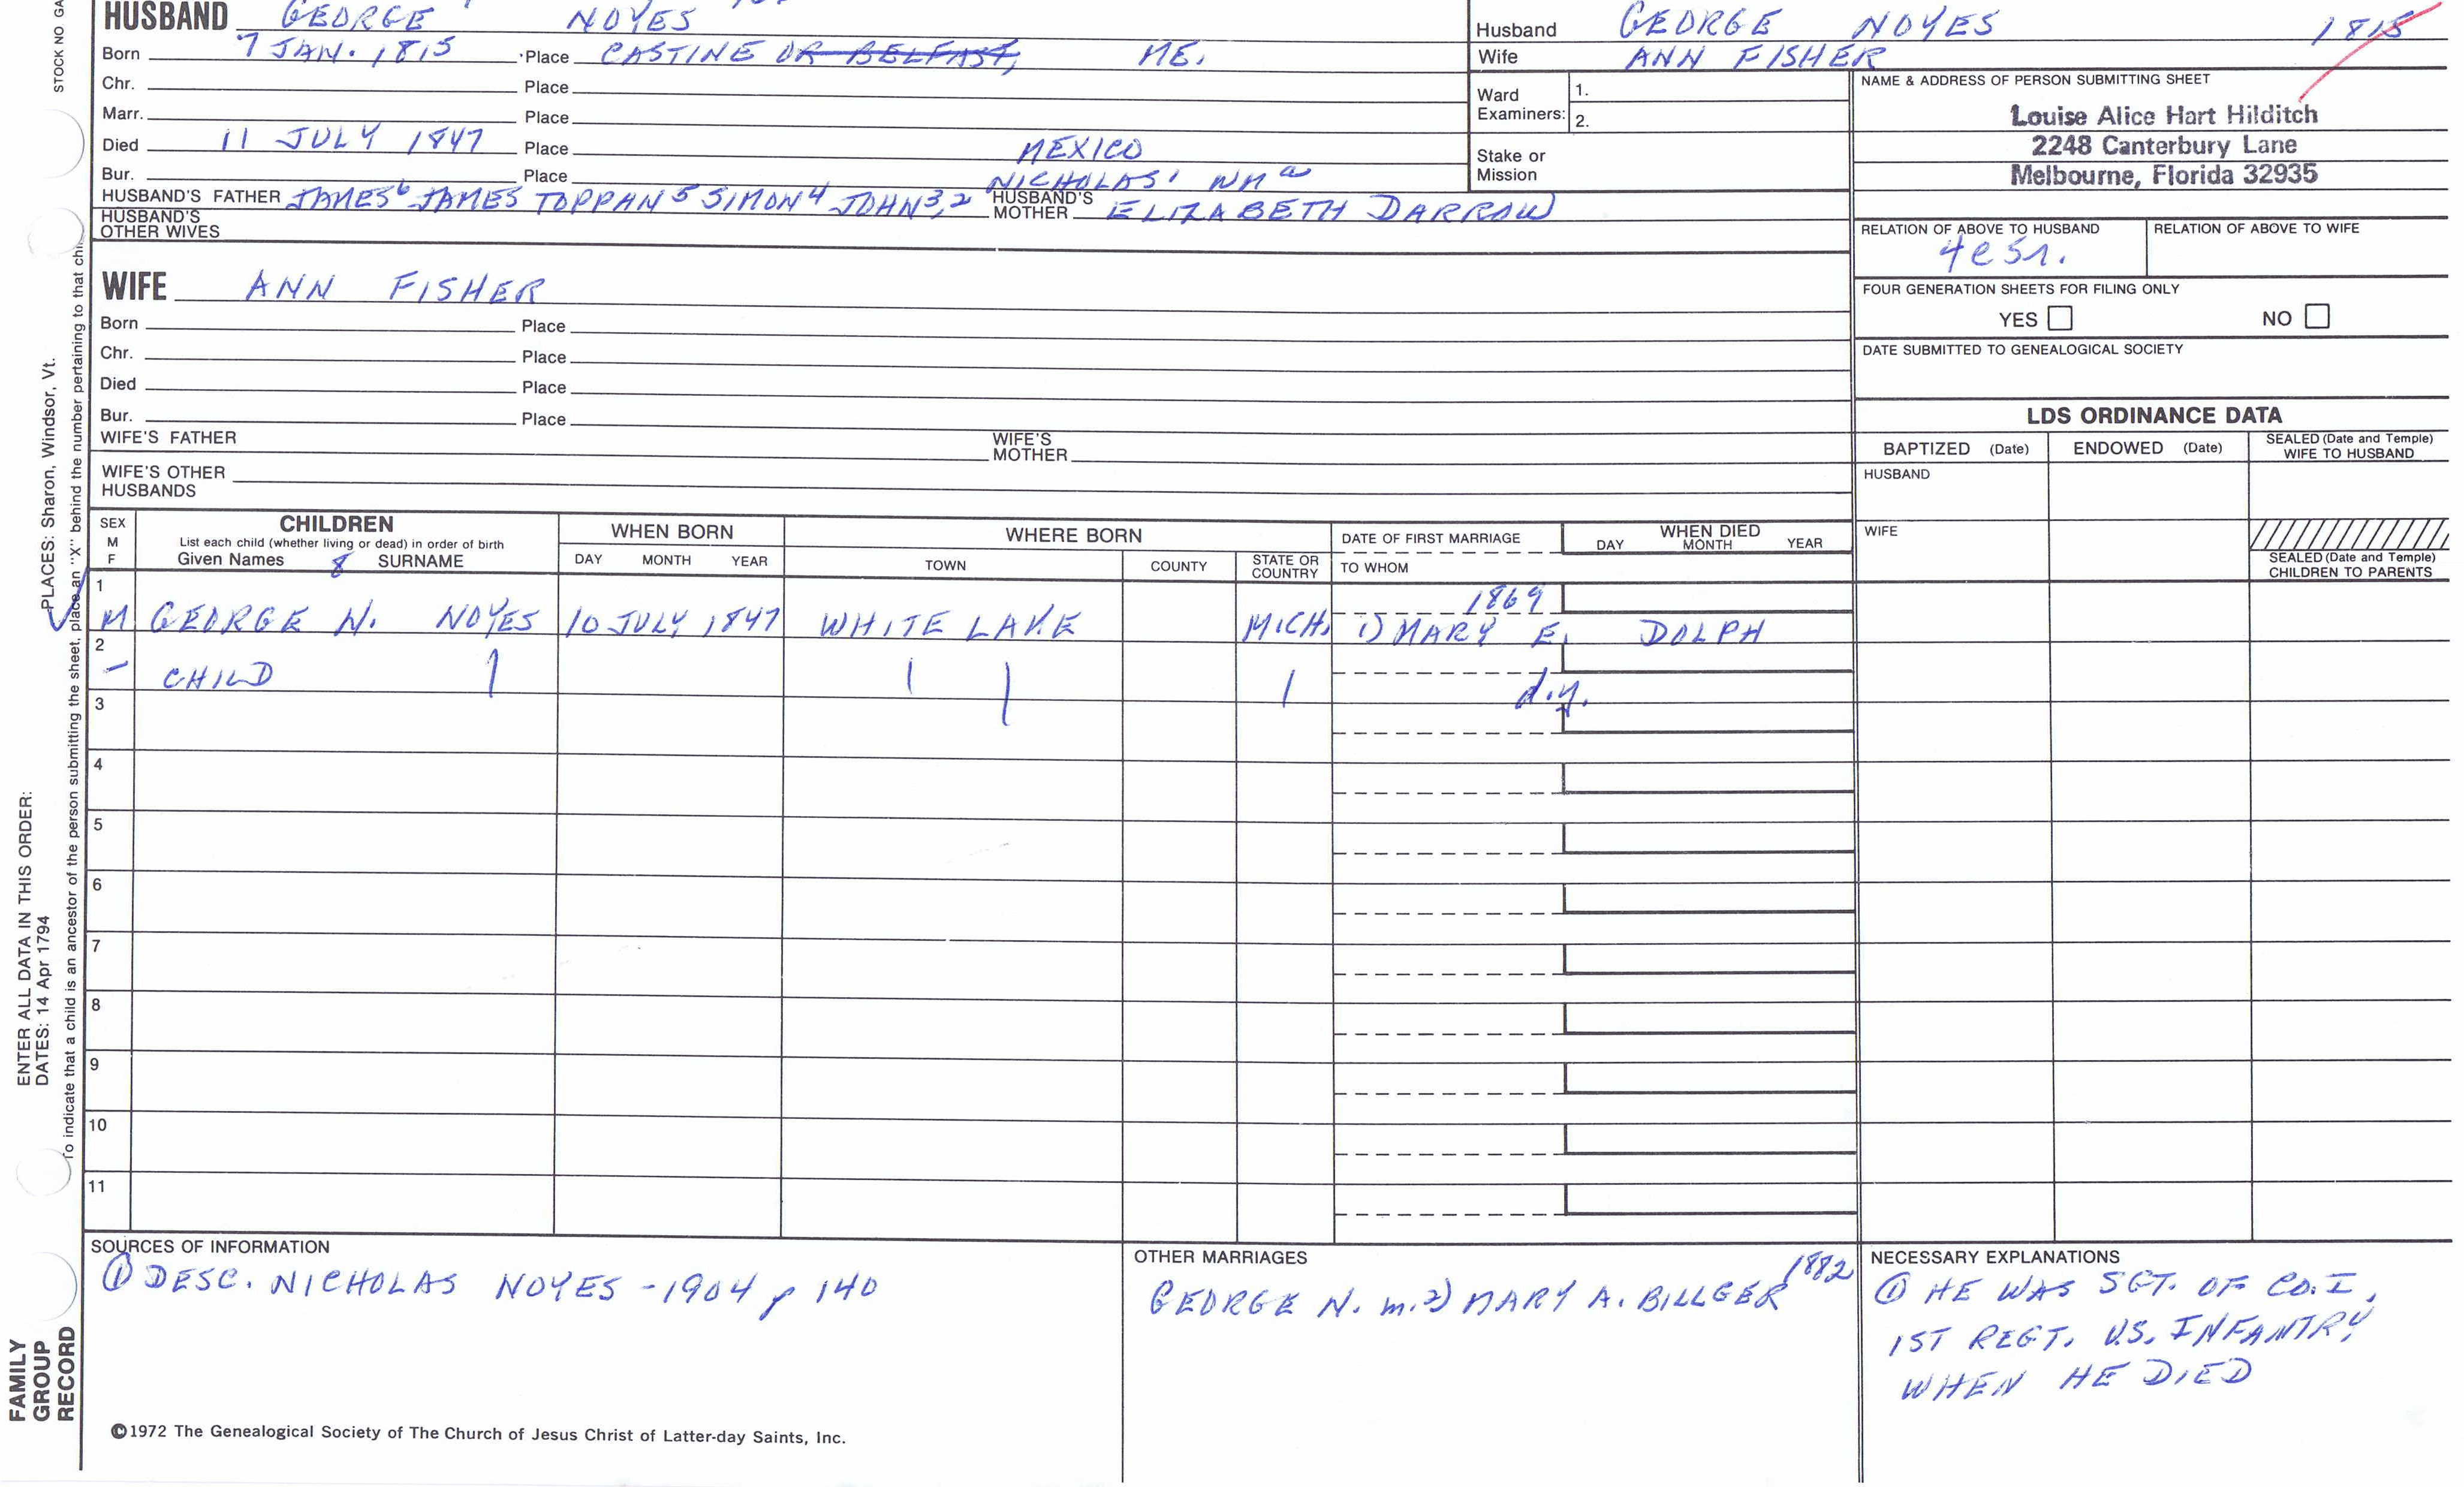 STOCK NO GA
HUSBAND GEORGE NOYES
Born 7 JAN. 1815 Place CASTINE OR BELFAST, ME.
Chr. Place
Marr. Place
Died 11 JULY 1847 Place MEXICO
Bur. Place
NICHOLAS1 WMa
HUSBAND'S FATHER JAMES6 JAMES TOPPAN5 SIMON4 JOHN3,2 HUSBAND'S MOTHER ELIZABETH DARROW
HUSBAND'S OTHER WIVES
WIFE ANN FISHER
Born Place
Chr. Place
Died Place
Bur. Place
WIFE'S FATHER WIFE'S MOTHER
WIFE'S OTHER HUSBANDS
Husband GEORGE NOYES 1815
Wife ANN FISHER
Ward Examiners: 1.
2.
Stake or Mission
NAME & ADDRESS OF PERSON SUBMITTING SHEET
Louise Alice Hart Hilditch
2248 Canterbury Lane
Melbourne, Florida 32935
RELATION OF ABOVE TO HUSBAND RELATION OF ABOVE TO WIFE
FOUR GENERATION SHEETS FOR FILING ONLY
YES NO
DATE SUBMITTED TO GENEALOGICAL SOCIETY
LDS ORDINANCE DATA
BAPTIZED (Date) ENDOWED (Date) SEALED (Date and Temple) WIFE TO HUSBAND
HUSBAND
WIFE
SEALED (Date and Temple) CHILDREN TO PARENTS
SEX M F
CHILDREN
List each child (whether living or dead) in order of birth
Given Names 8 SURNAME
WHEN BORN
DAY MONTH YEAR
WHERE BORN
TOWN COUNTY STATE OR COUNTRY
DATE OF FIRST MARRIAGE
TO WHOM
WHEN DIED
DAY MONTH YEAR
1 1869
M GEORGE N. NOYES 10 JULY 1847 WHITE LAKE MICH. 1) MARY E. DOLPH
2
- CHILD d.y.
3
4
5
6
7
8
9
10
11
SOURCES OF INFORMATION
① DESC. NICHOLAS NOYES - 1904 p 140
OTHER MARRIAGES
GEORGE N. m. 2) MARY A. BILLGER 1882
NECESSARY EXPLANATIONS
① HE WAS SGT. OF CO. I,
1ST REGT. U.S. INFANTRY
WHEN HE DIED
©1972 The Genealogical Society of The Church of Jesus Christ of Latter-day Saints, Inc.
PLACES: Sharon, Windsor, Vt.
To indicate that a child is an ancestor of the person submitting the sheet, place an "X" behind the number pertaining to that chi
ENTER ALL DATA IN THIS ORDER:
DATES: 14 Apr 1794
FAMILY
GROUP
RECORD